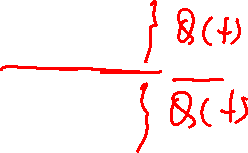 Q(t)
Q̅(t)